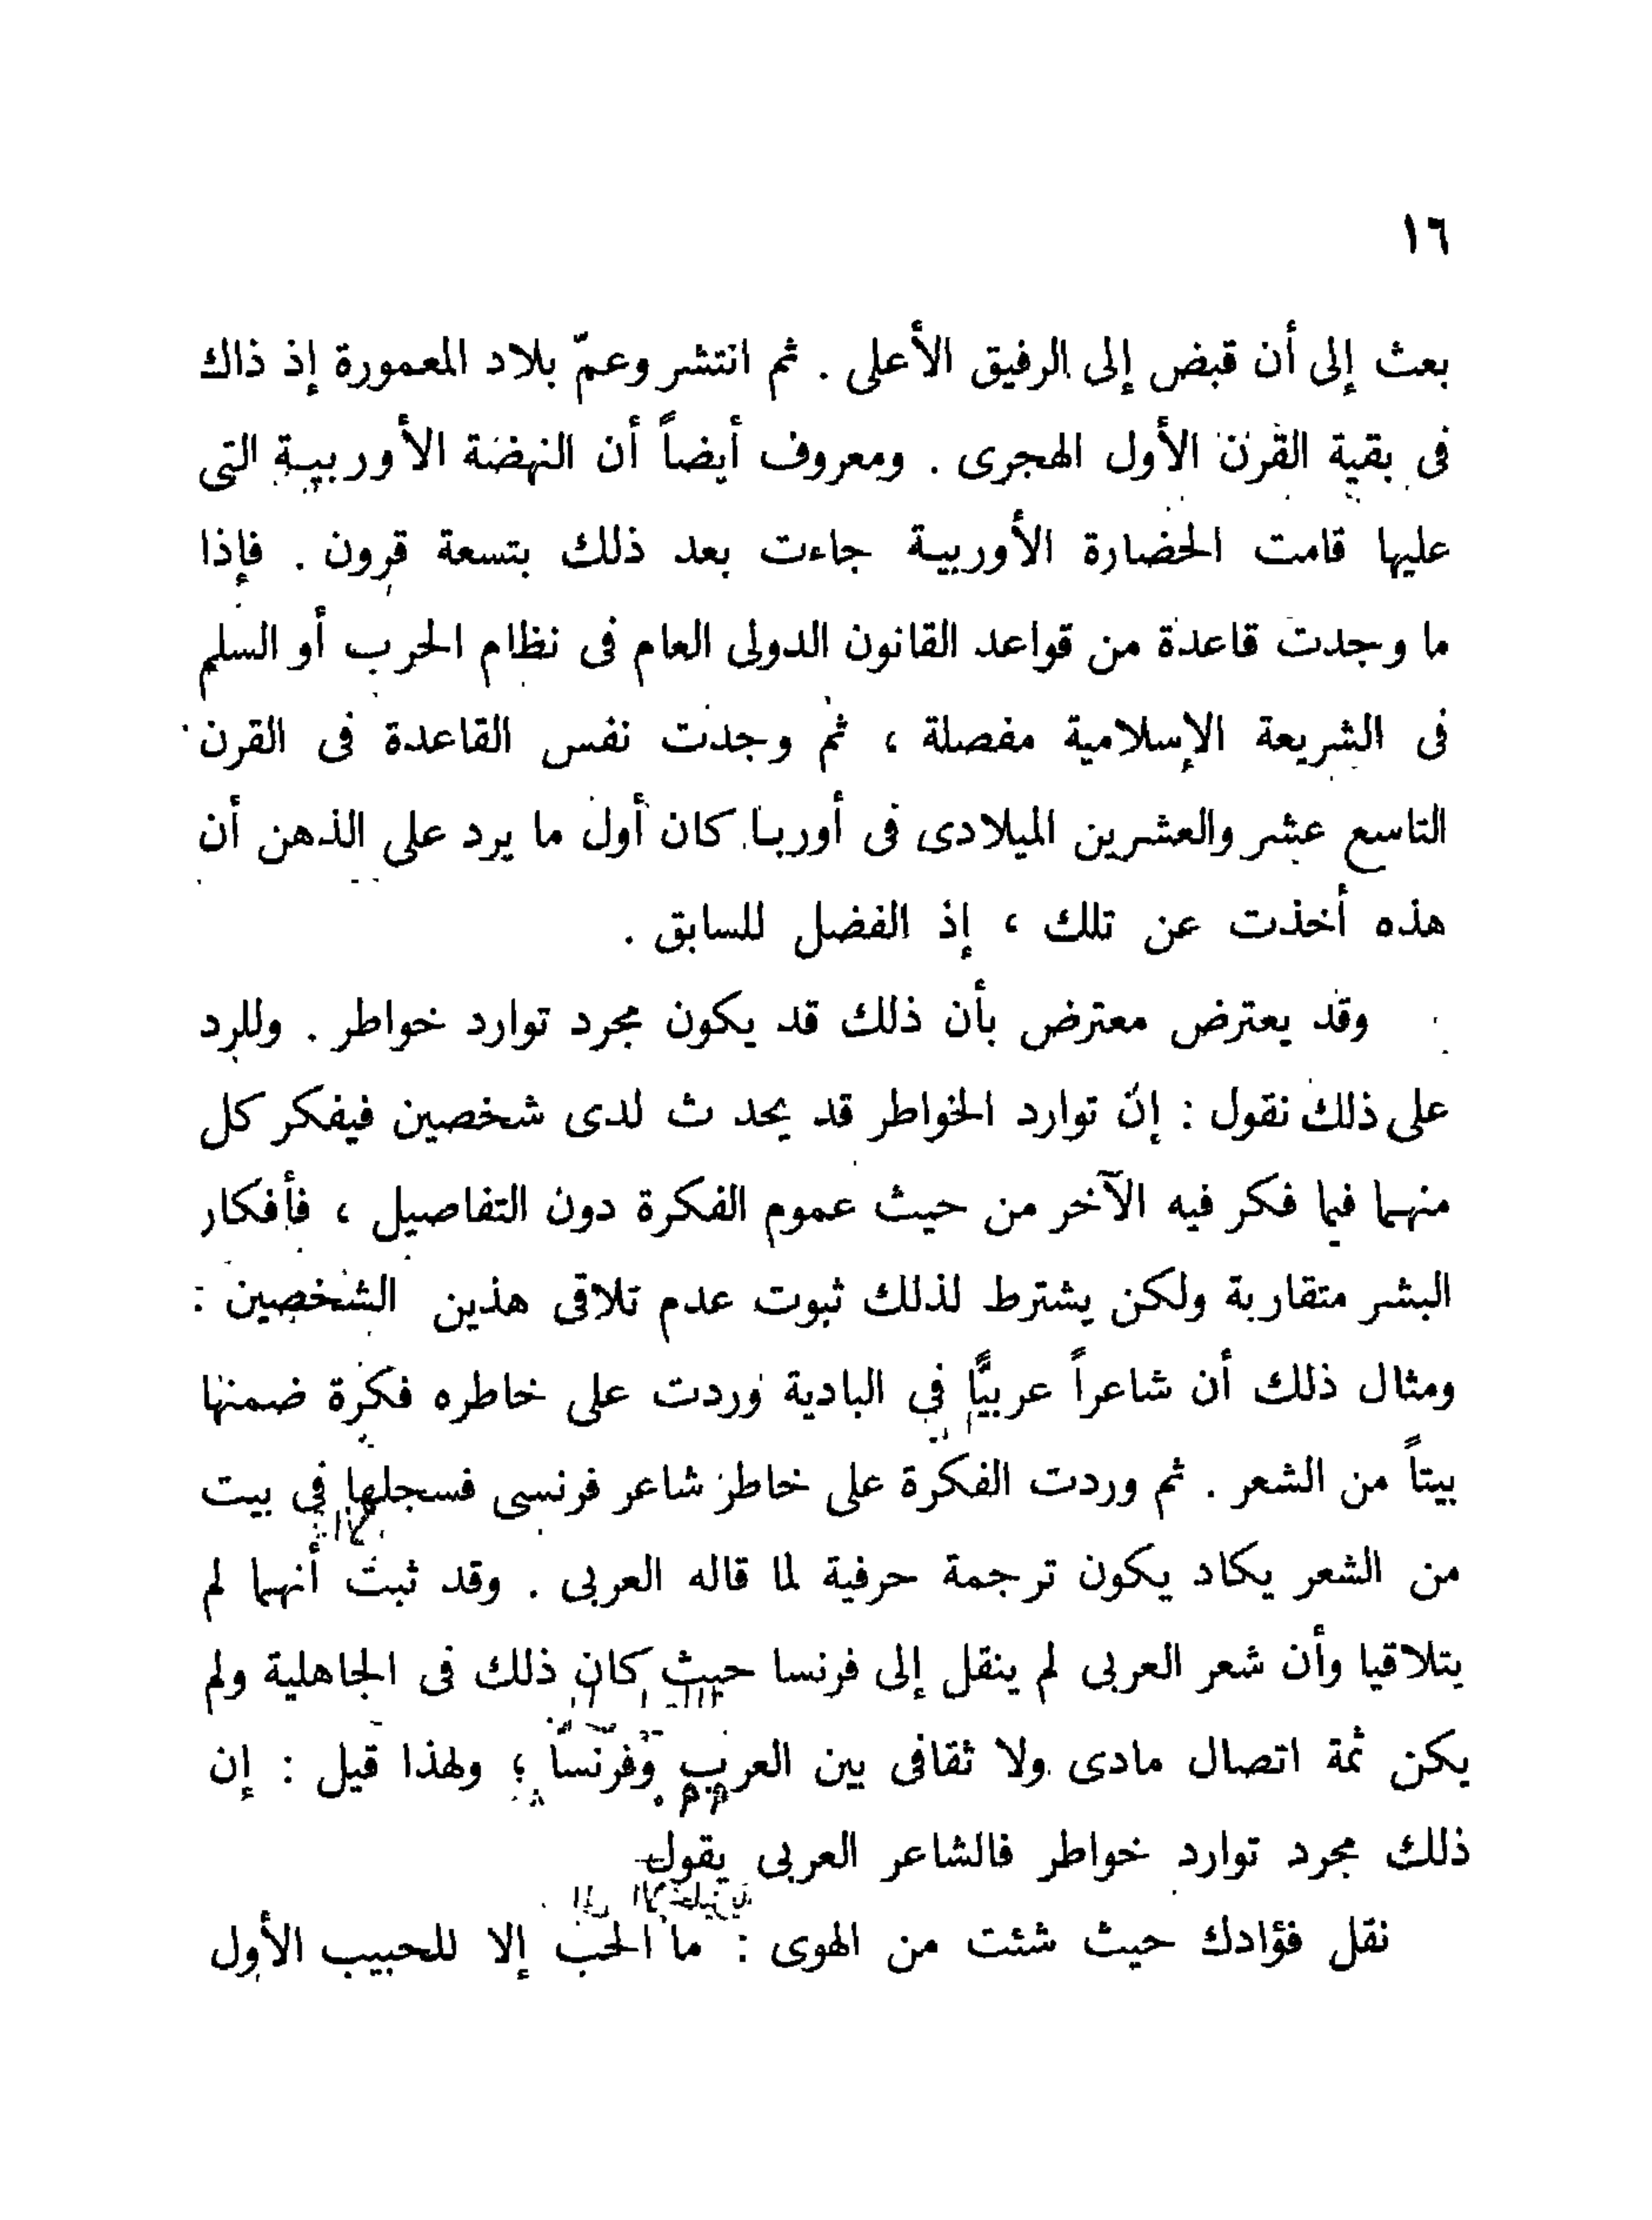 ١٦
بعث إلى أن قبض إلى الرفيق الأعلى . ثم انتشر وعمّ بلاد المعمورة إذ ذاك
فى بقية القرن الأول الهجرى . ومعروف أيضاً أن النهضة الأوربية التى
عليها قامت الحضارة الأوربية جاءت بعد ذلك بتسعة قرون . فإذا
ما وجدت قاعدة من قواعد القانون الدولى العام فى نظام الحرب أو السلم
فى الشريعة الإسلامية مفصلة ، ثم وجدت نفس القاعدة فى القرن
التاسع عشر والعشرين الميلادى فى أوربا كان أول ما يرد على الذهن أن
هذه أخذت عن تلك ، إذ الفضل للسابق .
وقد يعترض معترض بأن ذلك قد يكون مجرد توارد خواطر . وللرد
على ذلك نقول : إن توارد الخواطر قد يحد ث لدى شخصين فيفكر كل
منهما فيما فكر فيه الآخر من حيث عموم الفكرة دون التفاصيل ، فأفكار
البشر متقاربة ولكن يشترط لذلك ثبوت عدم تلاقى هذين الشخصين :
ومثال ذلك أن شاعراً عربيًّا في البادية وردت على خاطره فكرة ضمنها
بيتاً من الشعر . ثم وردت الفكرة على خاطر شاعر فرنسى فسجلها في بيت
من الشعر يكاد يكون ترجمة حرفية لما قاله العربى . وقد ثبت أنهما لم
يتلاقيا وأن شعر العربى لم ينقل إلى فرنسا حيث كان ذلك فى الجاهلية ولم
يكن ثمة اتصال مادى ولا ثقافى بين العرب وفرنسا ؛ ولهذا قيل : إن
ذلك مجرد توارد خواطر فالشاعر العربى يقول
نقل فؤادك حيث شئت من الهوى : ما الحب إلا للحبيب الأول